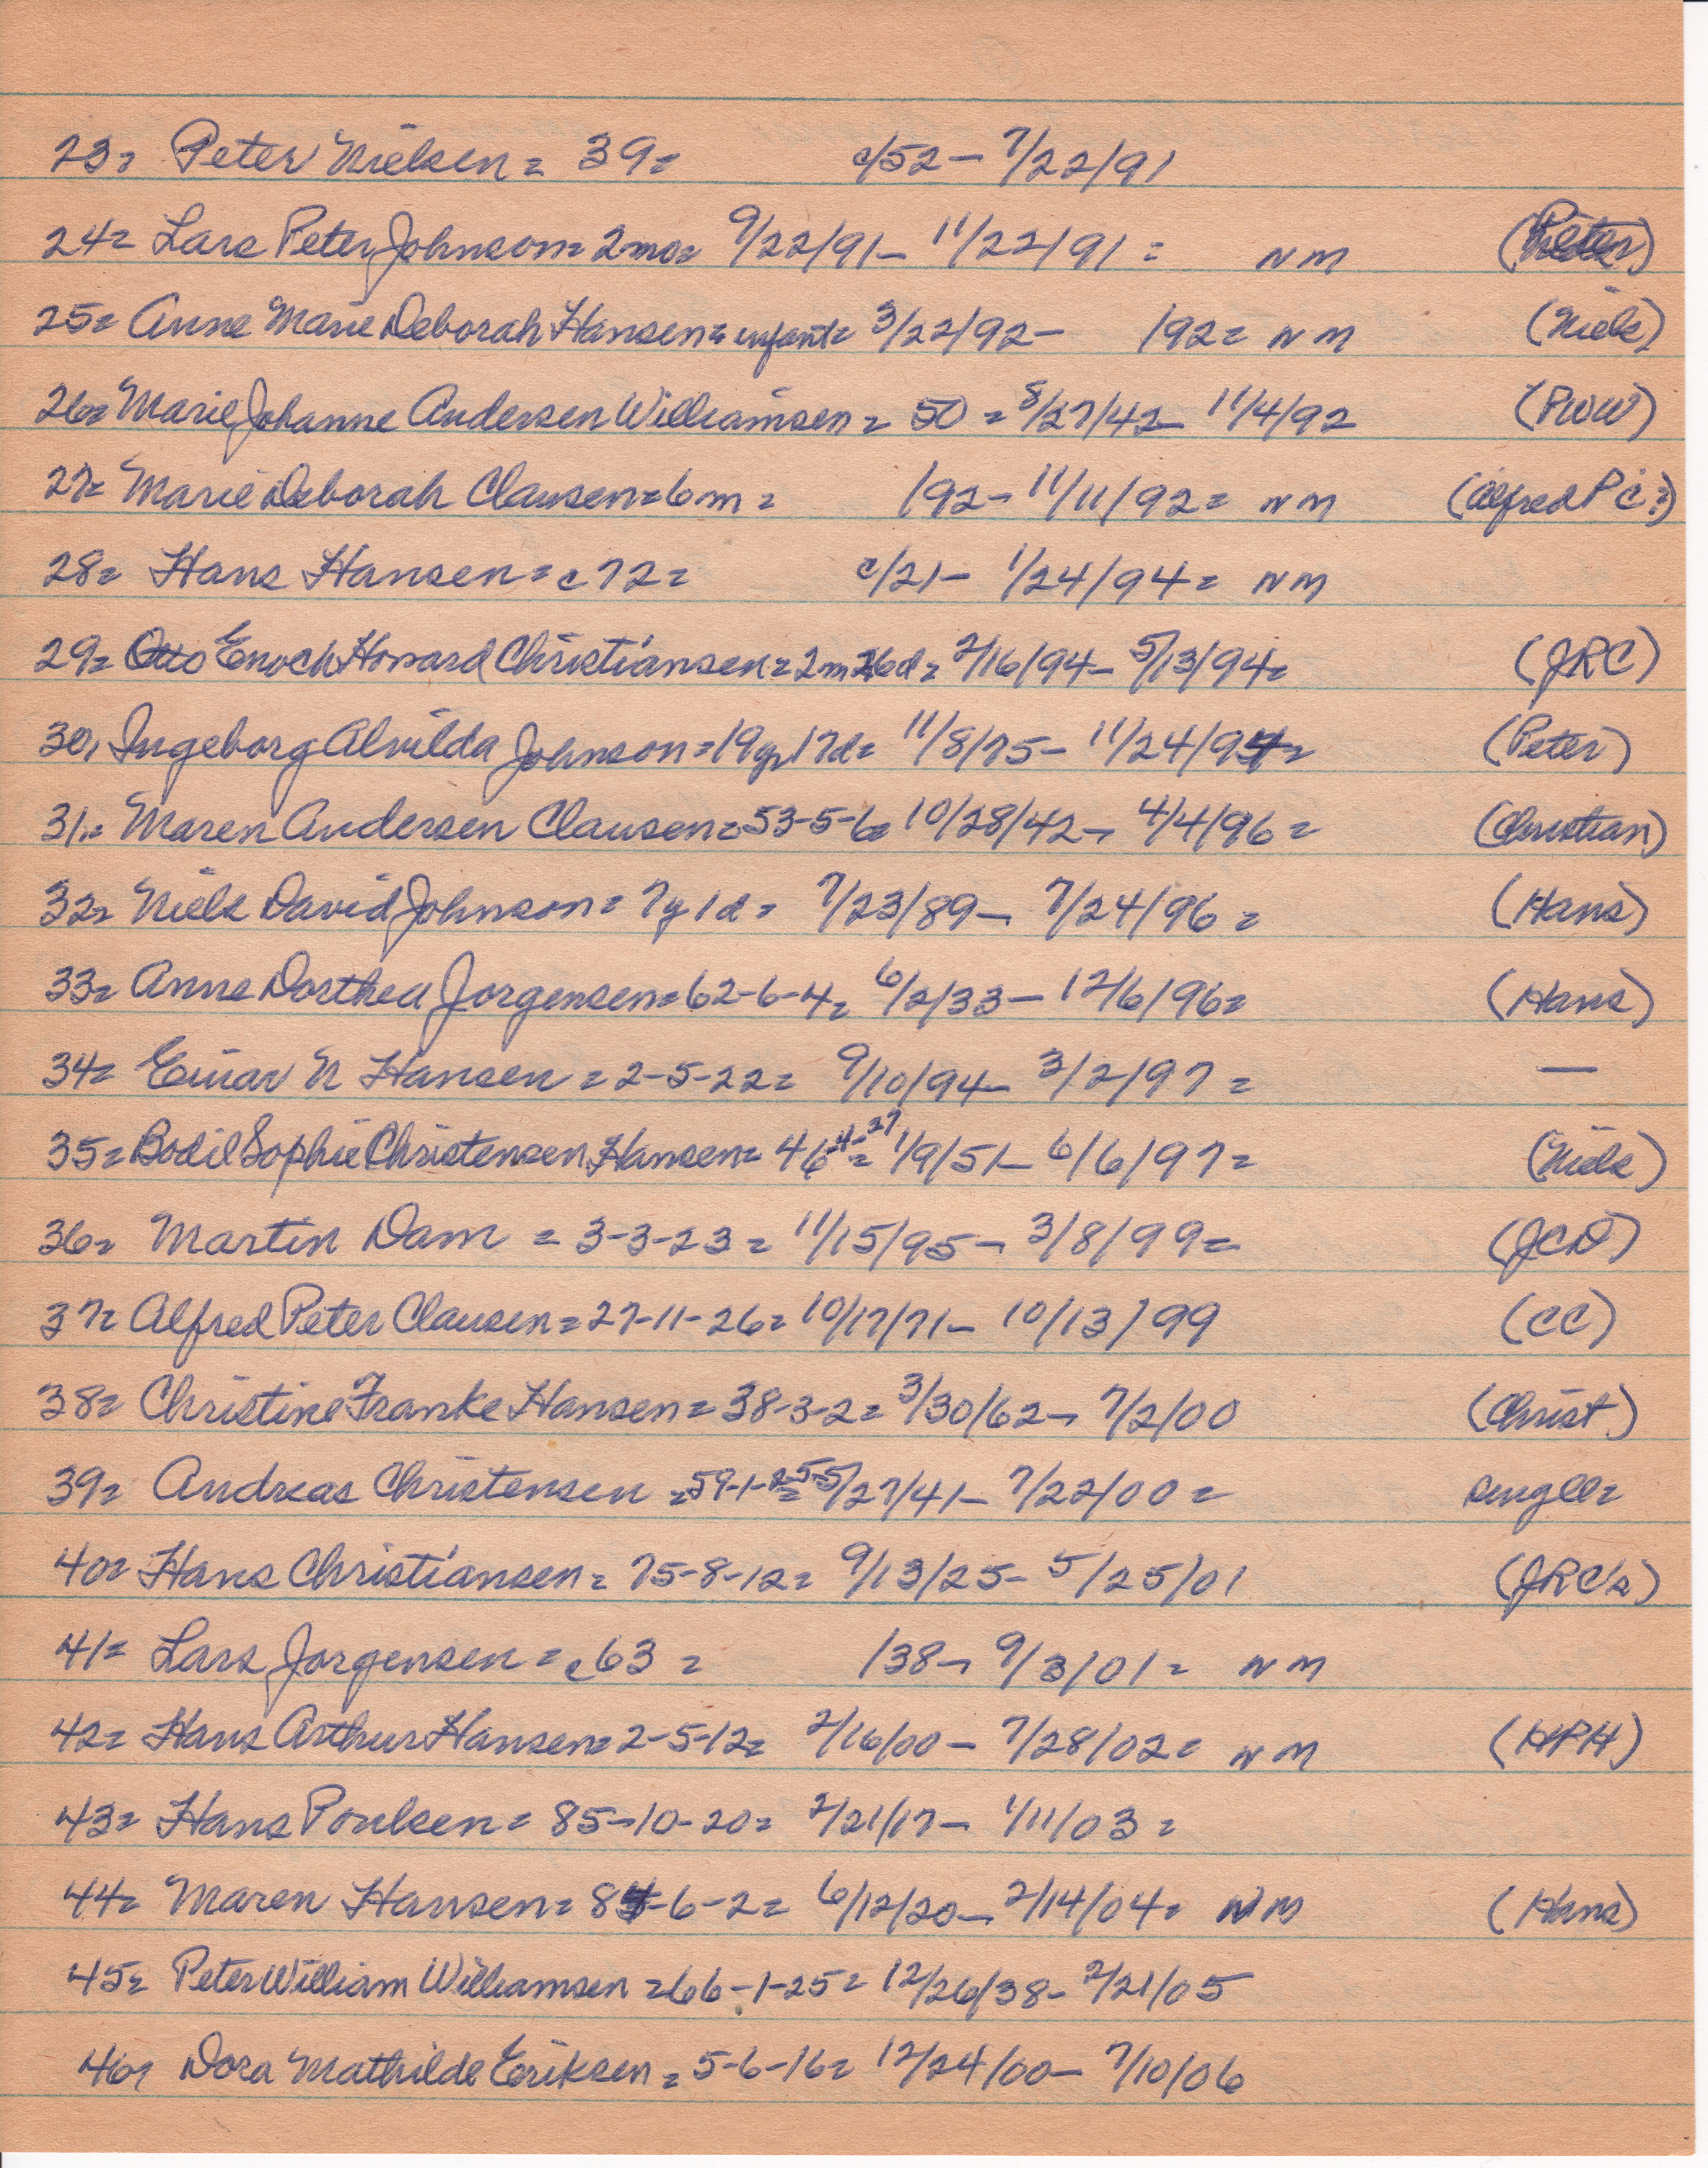 23= Peter Nielsen = 39= c/52 – 7/22/91
24= Lars Peter Johnson= 2mo= 9/22/91 – 11/22/91 = NM (Peter)
25= Anne Marie Deborah Hansen= infant= 3/22/92 – /92= NM (Niels)
26= Marie Johanne Andersen Williamsen = 50 = 8/27/42 – 11/4/92 (PWW)
27= Marie Deborah Clausen=6m = /92 – 11/11/92= NM (Alfred P C?)
28= Hans Hansen = c72= c/21 – 1/24/94= NM
29= Otto Enoch Howard Christiansen=2m 26d= 2/16/94 – 5/13/94= (JRC)
30, Ingeborg Alvilda Johnson=19y 17d= 11/8/75 – 11/24/94= (Peter)
31.= Maren Andersen Clausen=53-5-6= 10/28/42 – 4/4/96 = (Christian)
32= Niels David Johnson= 7y 1d = 7/23/89 – 7/24/96 = (Hans)
33= Anne Dorthea Jorgensen=62-6-4= 6/2/33 – 12/6/96= (Hans)
34= Einar N Hansen = 2-5-22= 9/10/94 – 3/2/97 = —
35= Bodil Sophie Christensen Hansen= 46-4-27= 1/9/51 – 6/6/97= (Niels)
36= Martin Dam = 3-3-23 = 11/15/95 – 3/8/99= (JCD)
37= Alfred Peter Clausen = 27-11-26= 10/17/71 – 10/13/99 (CC)
38= Christine Franke Hansen = 38-3-2= 3/30/62 – 7/2/00 (Christ)
39= Andreas Christensen =59-1-25= 5/27/41 – 7/22/00 = single=
40= Hans Christiansen = 75-8-12= 9/13/25 – 5/25/01 (JRC's)
41= Lars Jorgensen = c63 = /38 – 9/3/01= NM
42= Hans Arthur Hansen= 2-5-12= 2/16/00 – 7/28/02= NM (HPH)
43= Hans Poulsen = 85-10-20= 2/21/17 – 1/11/03 =
44= Maren Hansen = 84-6-2= 6/12/20 – 2/14/04= NM (Hans)
45= Peter William Williamsen =66-1-25= 12/26/38 – 2/21/05
46= Dora Mathilde Eriksen = 5-6-16= 12/24/00 – 7/10/06